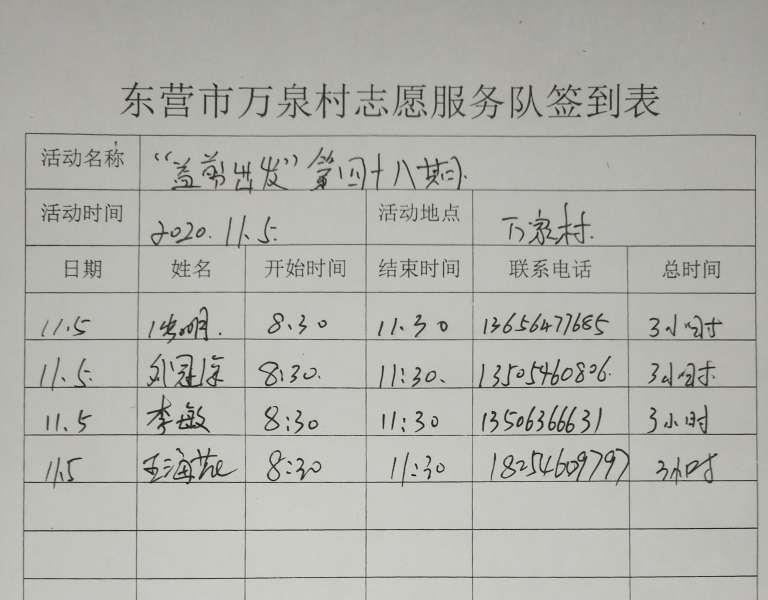 东营市万泉村志愿服务队签到表
活动名称 “益剪出发”第四十八期
活动时间 2020.11.5. 活动地点 万泉村.
日期 姓名 开始时间 结束时间 联系电话 总时间
11.5 8:30 11:30 13656477685 3小时
11.5. 8:30. 11:30. 13505460806. 3小时.
11.5 李敏 8:30 11:30 13506366631 3小时
11.5 王海 8:30 11:30 18254609797 3小时